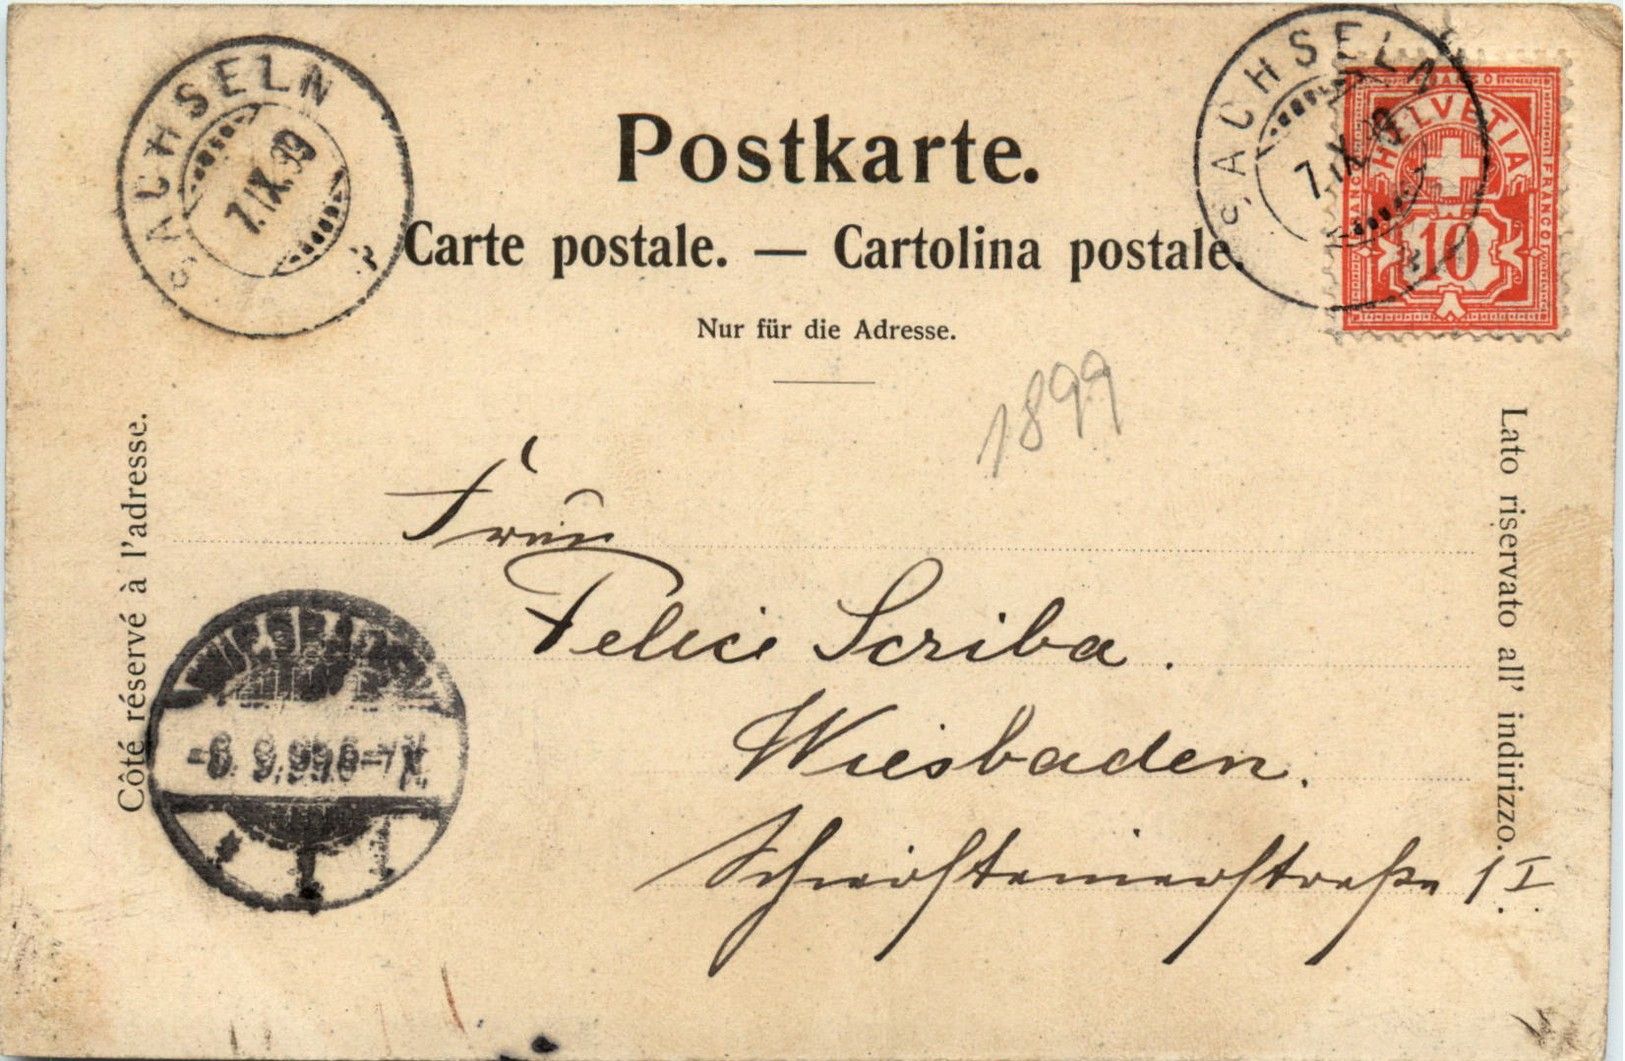 SACHSELN
7.IX.99
SACHSELN
7.IX.99
FRANCO
HELVETIA
FRANCO
FRANCO
10
Postkarte.
Carte postale. — Cartolina postale.
Nur für die Adresse.
1899
Côté réservé à l'adresse.
Lato riservato all' indirizzo.
Frau
Felici Scriba.
Wiesbaden.
WIESBADEN
9.99. 6-7
1
1 I.